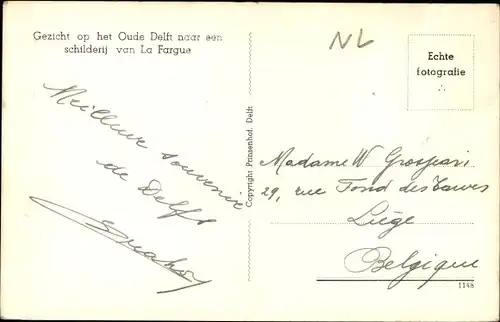 Gezicht op het Oude Delft naar een
schilderij van La Fargue
NL
Echte
fotografie
Meilleur souvenir
de Delft
Copyright Prinsenhof, Delft
Madame W Grosjean
29, rue Fond des Tawes
Liège
Belgique
1148